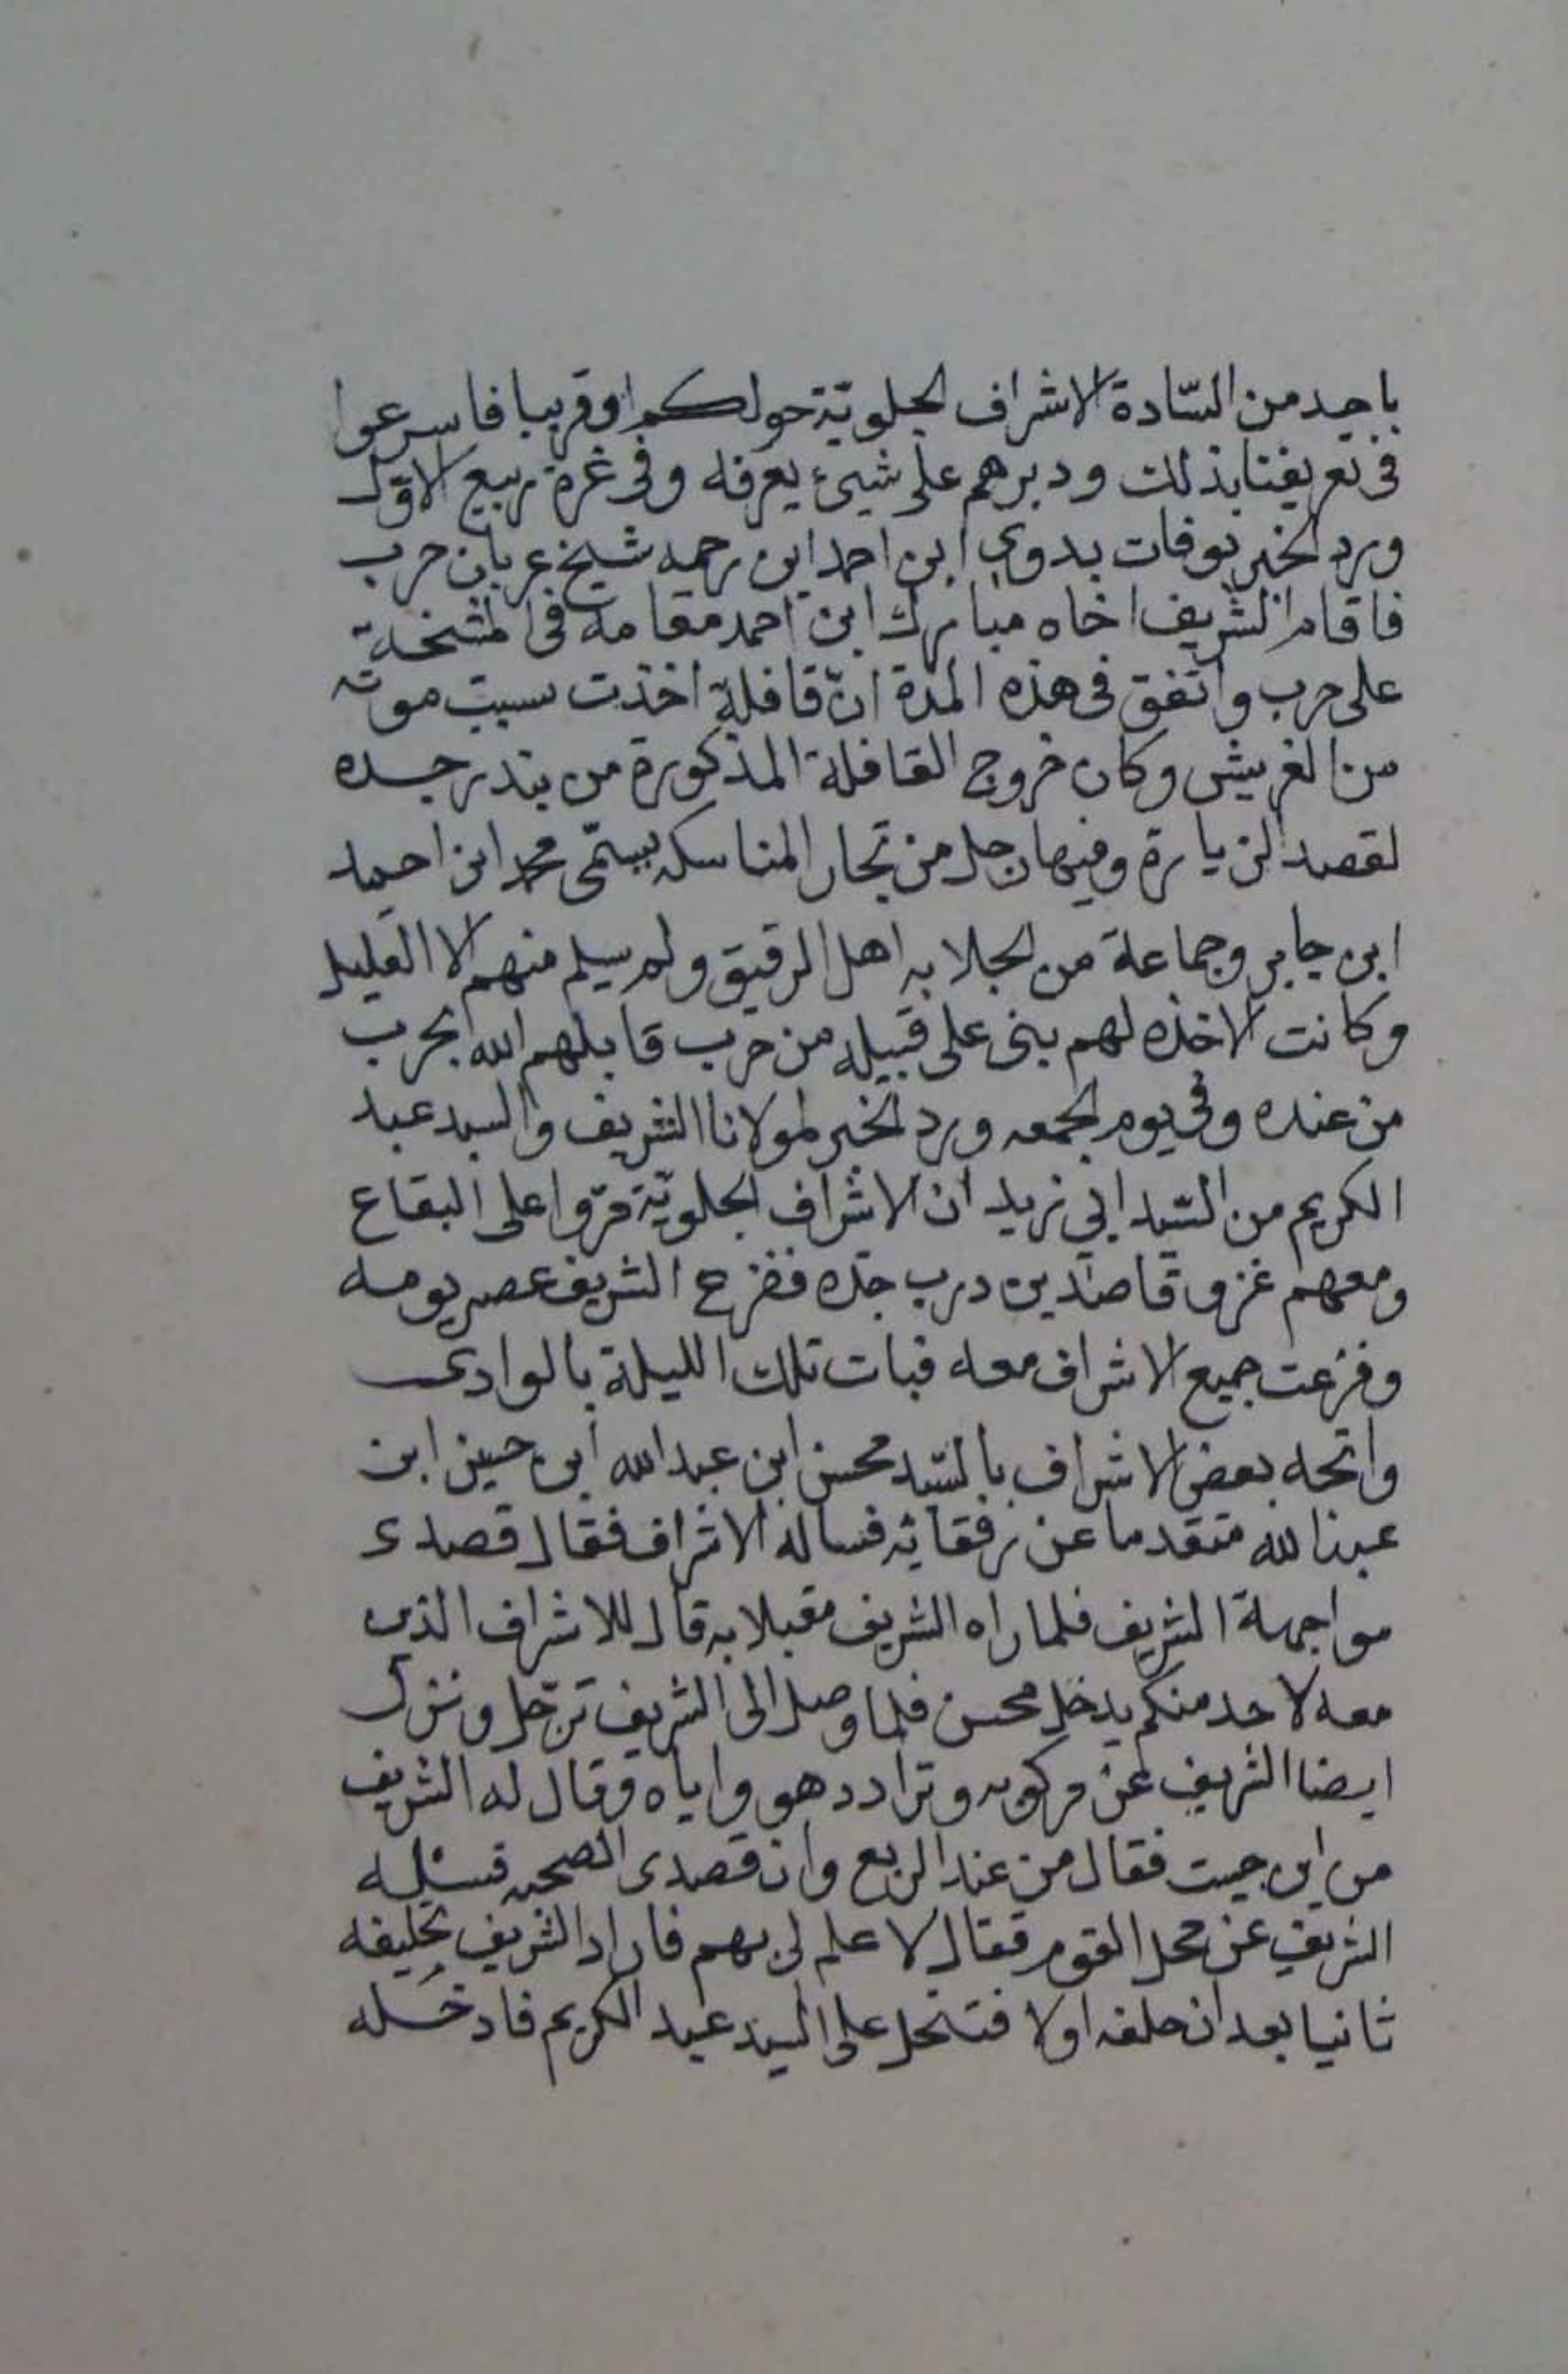 باحد من السّادة الاشراف الجلويّة حولكم او قريبا فاسرعوا
في تعريفنا بذلك ودبرهم على شيئ يعرفه وفي غرة ربيع الاول
ورد الخبر بوفات بدوي ابن احمد ابن رحمه شيخ عربان حرب
فاقام الشريف اخاه مبارك ابن احمد مقامه في المشخة
على حرب واتفق في هذه المدة انّ قافلة اخذت بسبب موته
من الغريش وكان خروج القافلة المذكورة من بندر جده
لقصد الزيارة وفيها رجل من تجار المناسكه يسمّى محمد ابن احمد
ابن جابر وجماعة من الجلابه اهل الرقيق ولم يسلم منهم الا القليل
وكانت الاخذه لهم بنى على قبيله من حرب قابلهم الله بحرب
من عنده وفي يوم الجمعه ورد الخبر لمولانا الشريف والسيد عبد
الكريم من السّيد ابي زيد ان الاشراف الجلويّة مرّوا على البقاع
ومعهم غزو قاصدين درب جده ففزع الشريف عصر يومه
وفزعت جميع الاشراف معه فبات تلك الليلة بالوادى
واتجه بعض الاشراف بالسّيد محسن ابن عبد الله ابن حسين ابن
عبد الله متقدما عن رفقائه فساله الاشراف فقال قصدى
مواجهة الشريف فلما راه الشريف مقبلا به قال للاشراف الذى
معه لا احد منكم يدخل محسن فلما وصل الى الشريف ترجّل ونزل
ايضا الشريف عن مركوبه وترادد هو واياه وقال له الشريف
من اين جيت فقال من عند الربع وان قصدى الصحبه فسئله
الشريف عن محل القوم فقال لا علم لى بهم فاراد الشريف تحليفه
ثانيا بعد ان حلفه اولا فتدخل على السيد عبد الكريم فادخله